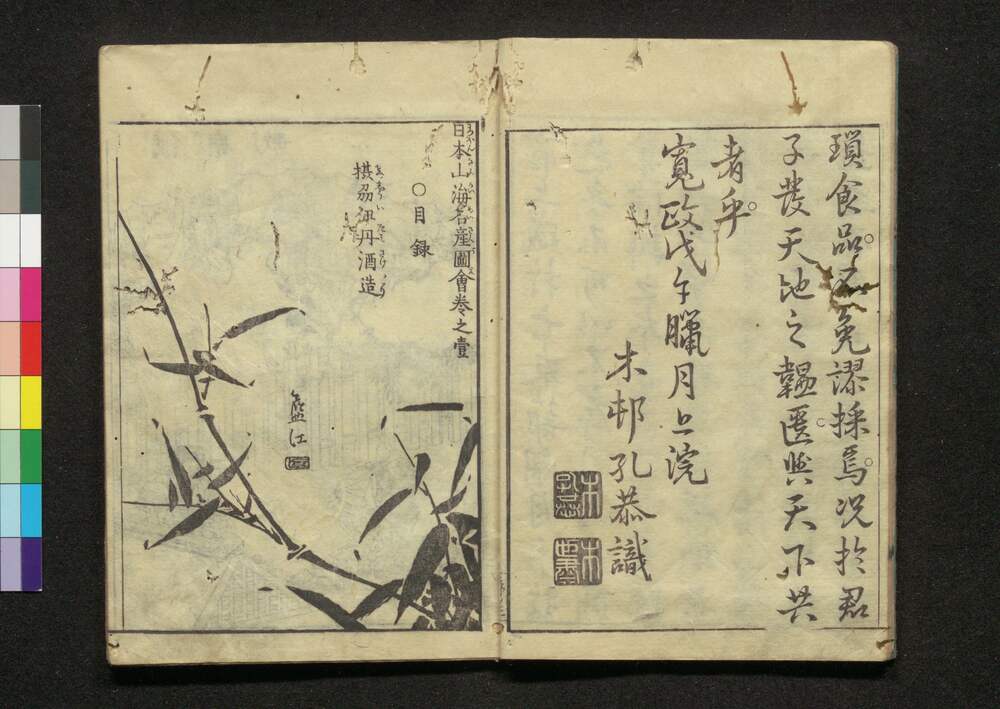 瑣食品不免謬採焉況於君
子發天地之韞匵與天下共
者乎
寬政戊午臘月上浣
木邨孔恭識
日本山海名產圖會卷之壹
○目錄
攝刕伊丹酒造
藍江